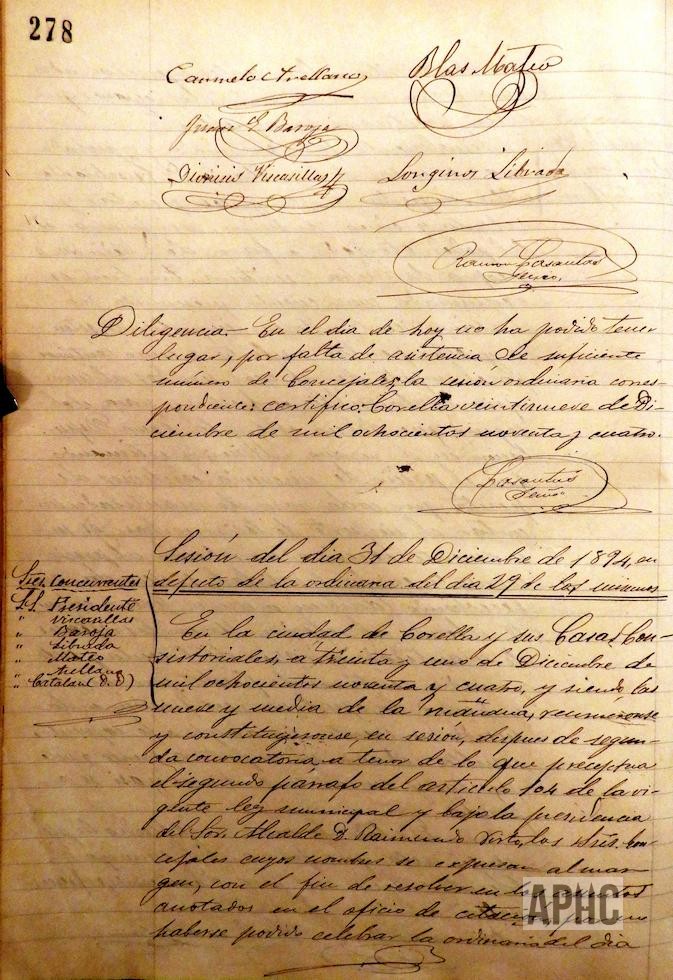 278
Carmelo Arellano
Blas Mateo
Juan E Baroja
Dionisio Viscasillas
Longinos Librada
Ramon Lasantas
Srio.
Diligencia.- En el dia de hoy no ha podido tener
lugar, por falta de asistencia de suficiente
número de Concejales, la sesión ordinaria corres-
pondiente: certifico. Corella veintinueve de Di-
ciembre de mil ochocientos noventa y cuatro.
Lasantas
Srio
Sesión del dia 31 de Diciembre de 1894, en
defecto de la ordinaria del dia 29 de los mismos
Sres. concurrentes
Presidente
" Viscasillas
" Baroja
" Librada
" Mateo
" Arellano
" Catalan (D. D)
En la ciudad de Corella y sus Casas Con-
sistoriales, a treinta y uno de Diciembre de
mil ochocientos noventa y cuatro, y siendo las
nueve y media de la mañana, reunieronse
y constituyeronse en sesión, despues de segun-
da convocatoria a tenor de lo que preceptua
el segundo párrafo del articulo 104 de la vi-
gente ley municipal y bajo la presidencia
del Sor. Alcalde D. Raimundo Virto, los Sres. Con-
cejales cuyos nombres se expresan al mar-
gen, con el fin de resolver en los asuntos
anotados en el oficio de citación, por no
haberse podido celebrar la ordinaria del dia
APHC